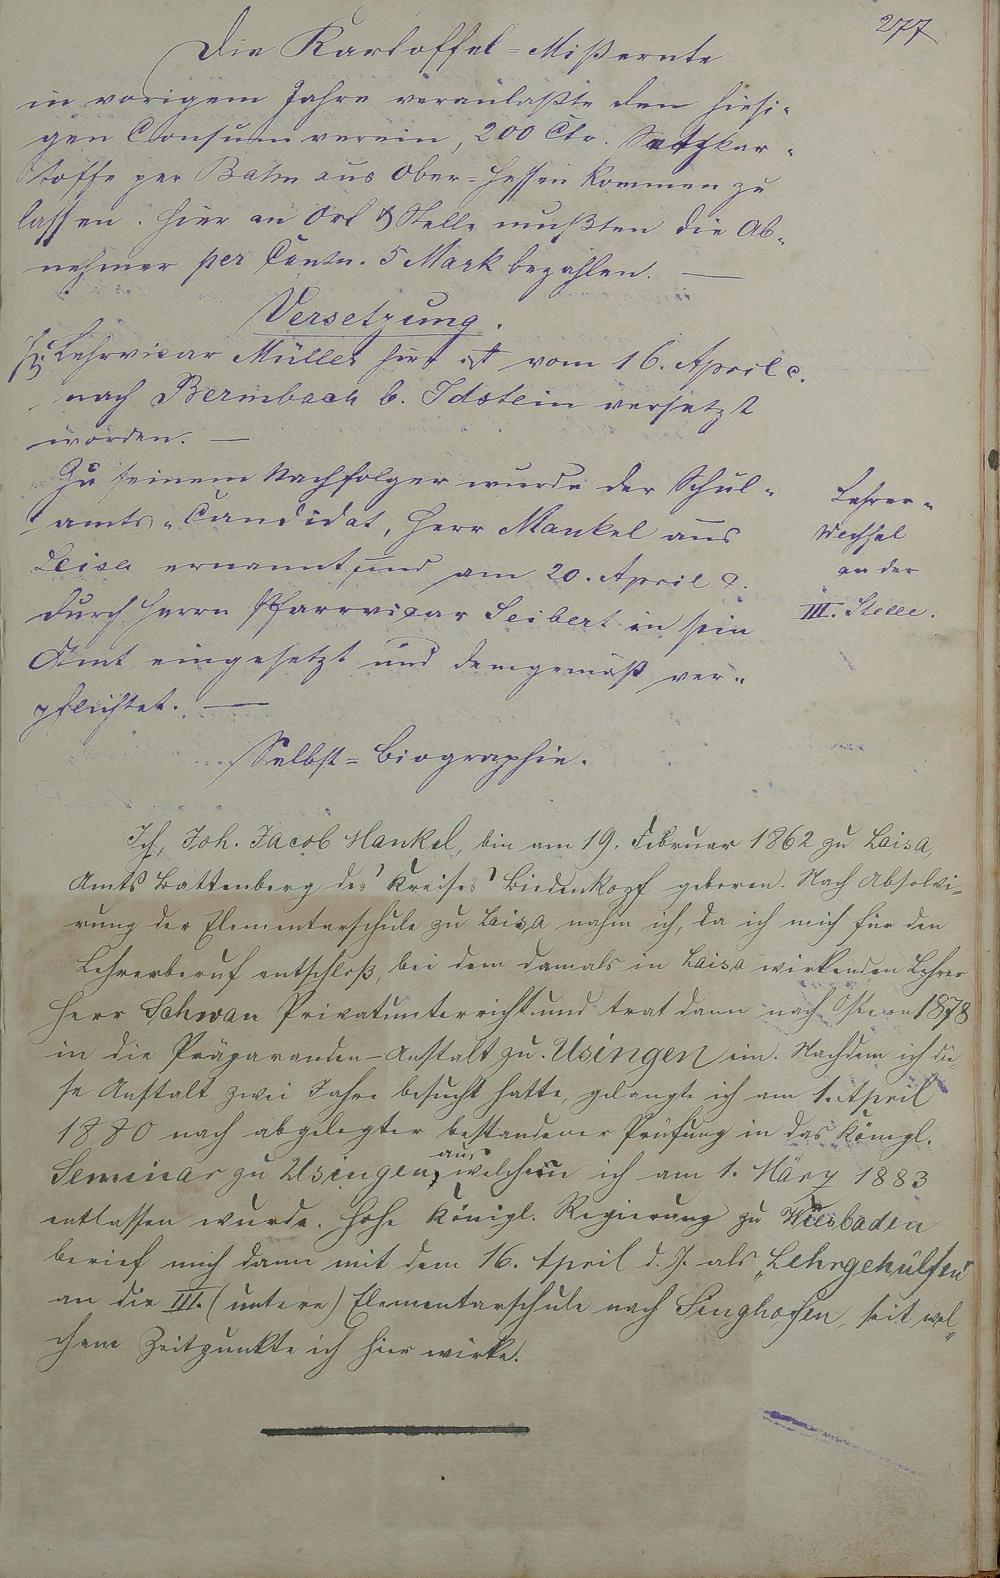 277
Die Kartoffel-Mißernte
in vorigem Jahre veranlaßte den hiesi-
gen Consumverein, 200 Ctr. Setzkar-
toffe per Bahn aus Ober-Hessen kommen zu
lassen. Hier an Ort & Stelle mußten die Ab-
nehmer per Centn. 5 Mark bezahlen. —
Versetzung.
Lehrvicar Müller hier ist vom 16. April c.
nach Bermbach b. Idstein versetzt
worden. —
Zu seinem Nachfolger wurde der Schul-
amts-Candidat, Herr Mankel aus
Leisa ernannt, und am 20. April c.
durch Herrn Pfarrvicar Seibert in sein
Amt eingesetzt und demgemäß ver-
pflichtet. —
Lehrer-
Wechsel
an der
III. Stelle.
Selbst-Biographie.
Ich, Joh. Jacob Mankel, bin am 19. Februar 1862 zu Laisa,
Amts Battenberg des Kreises Biedenkopf geboren. Nach Absolvi-
rung der Elementarschule zu Laisa nahm ich, da ich mich für den
Lehrerberuf entschloß, bei dem damals in Laisa wirkenden Lehrer
Herr Schwan Privatunterricht und trat dann nach Ostern 1878
in die Präparanden-Anstalt zu Usingen ein. Nachdem ich die-
se Anstalt zwei Jahre besucht hatte, gelangte ich am 1. April
1880 nach abgelegter bestandener Prüfung in das Königl.
Seminar zu Usingen, aus welchem ich am 1. März 1883
entlassen wurde. Hohe Königl. Regierung zu Wiesbaden
berief mich dann mit dem 16. April d. J. als „Lehrgehülfen"
an die III. (untere) Elementarschule nach Singhofen, seit wel-
chem Zeitpunkte ich hier wirke.